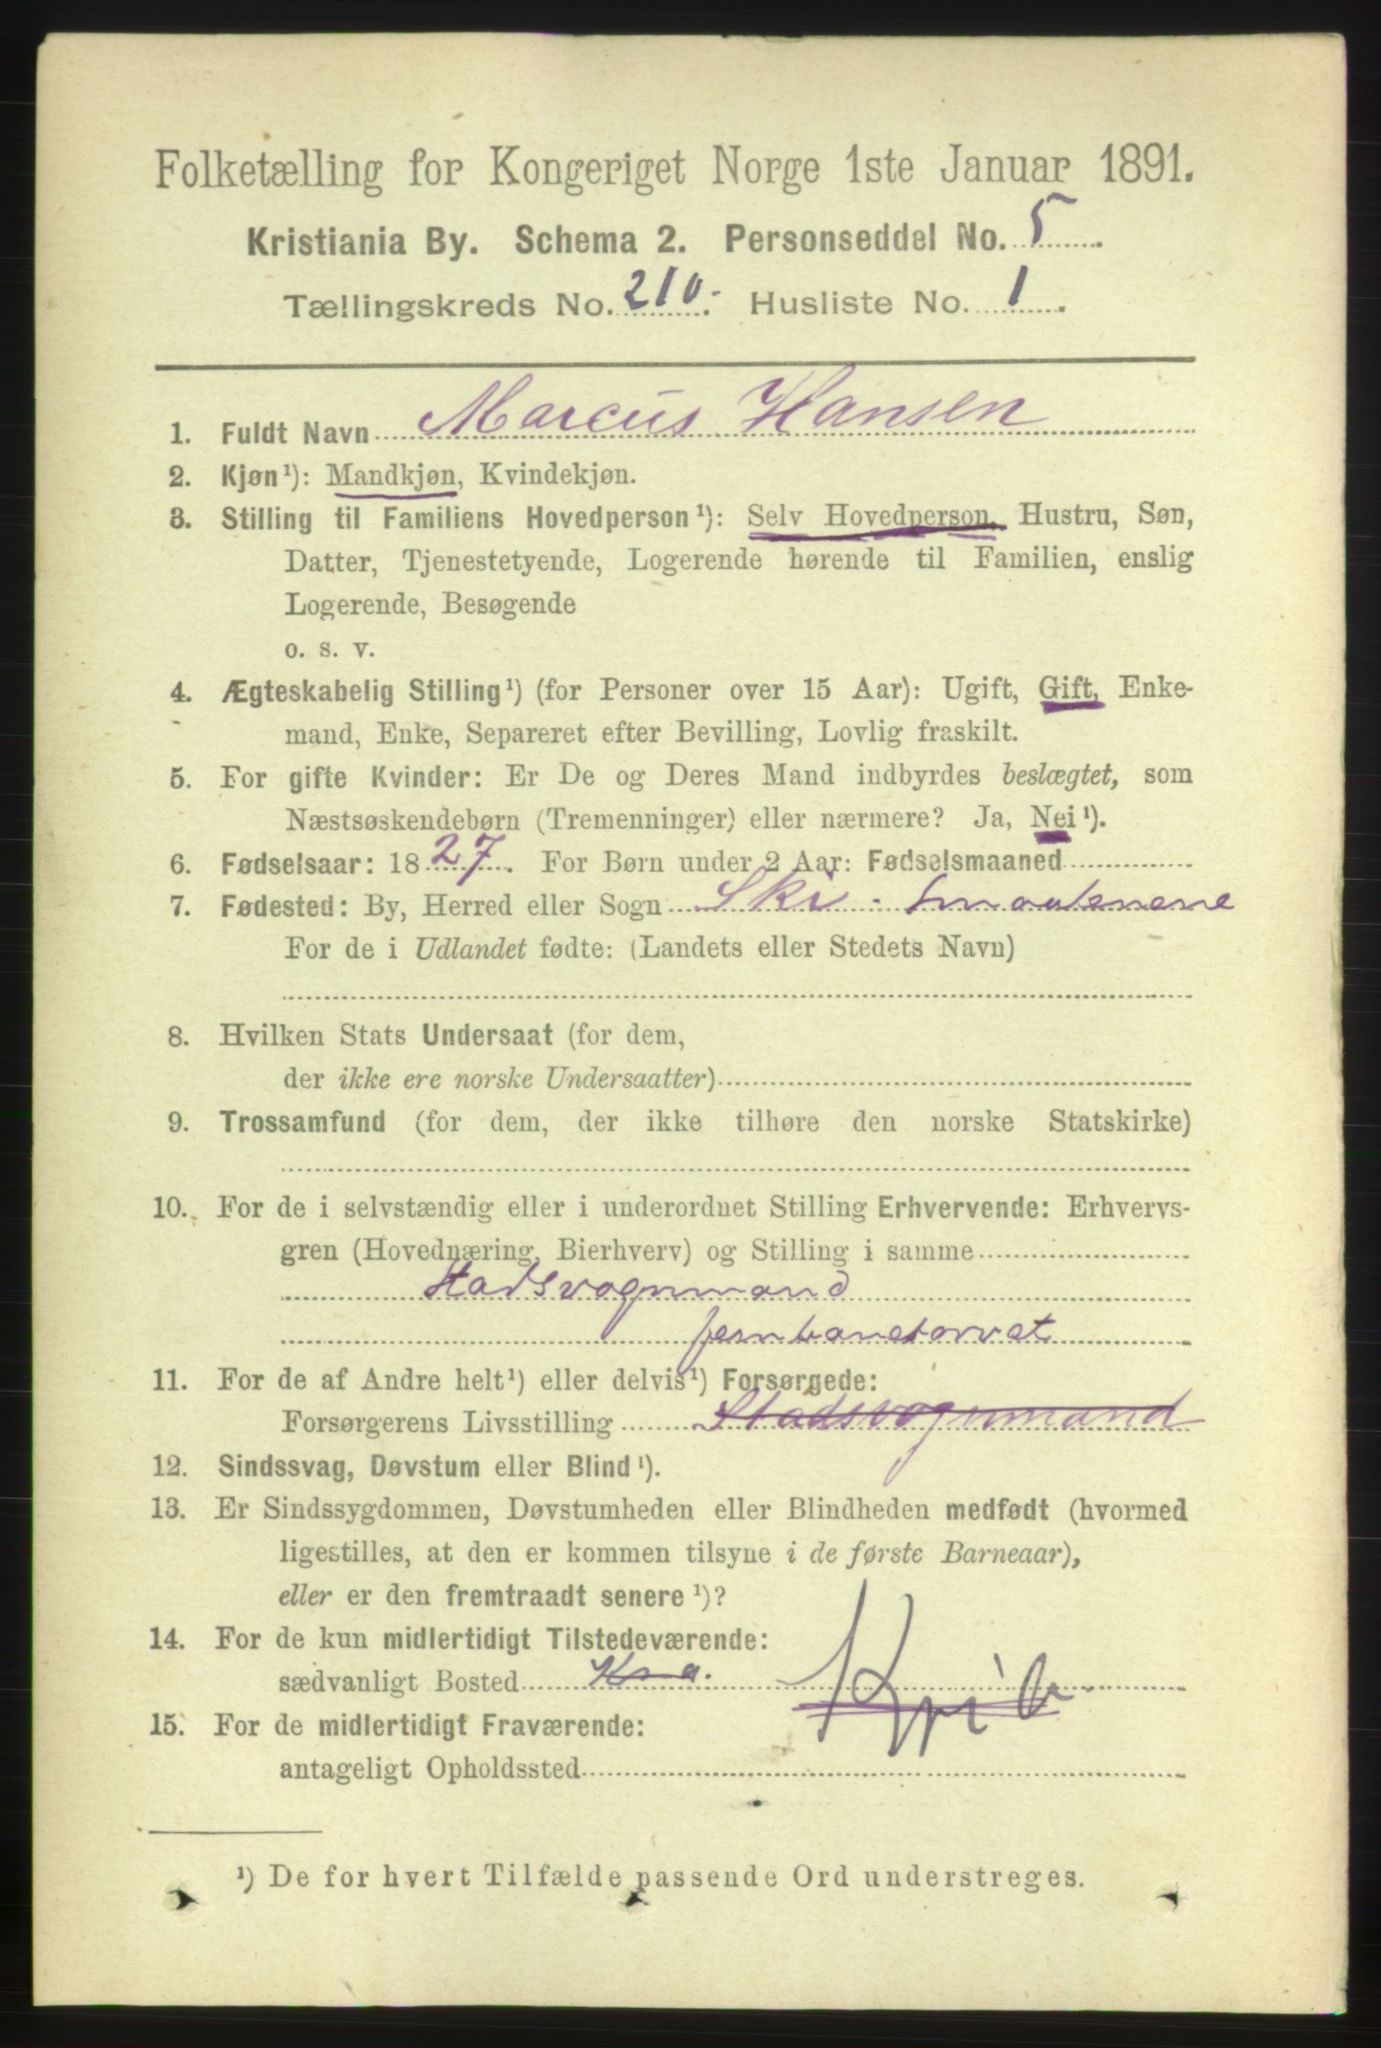 Folketælling for Kongeriget Norge 1ste Januar 1891.
Kristiania By. Schema 2. Personseddel No. 5
Tællingskreds No. 210. Husliste No. 1
1. Fuldt Navn Marcus Hansen
2. Kjøn¹): Mandkjøn, Kvindekjøn.
3. Stilling til Familiens Hovedperson¹): Selv Hovedperson, Hustru, Søn,
Datter, Tjenestetyende, Logerende hørende til Familien, enslig
Logerende, Besøgende
o. s. v.
4. Ægteskabelig Stilling¹) (for Personer over 15 Aar): Ugift, Gift, Enke-
mand, Enke, Separeret efter Bevilling, Lovlig fraskilt.
5. For gifte Kvinder: Er De og Deres Mand indbyrdes beslægtet, som
Næstsøskendebørn (Tremenninger) eller nærmere? Ja, Nei¹).
6. Fødselsaar: 1827. For Børn under 2 Aar: Fødselsmaaned
7. Fødested: By, Herred eller Sogn Ski. Smaalenene
For de i Udlandet fødte: (Landets eller Stedets Navn)
8. Hvilken Stats Undersaat (for dem,
der ikke ere norske Undersaatter)
9. Trossamfund (for dem, der ikke tilhøre den norske Statskirke)
10. For de i selvstændig eller i underordnet Stilling Erhvervende: Erhvervs-
gren (Hovednæring, Bierhverv) og Stilling i samme
Stadsvognmand
jernbanetorvet
11. For de af Andre helt¹) eller delvis¹) Forsørgede:
Forsørgerens Livsstilling Stadsvognmand
12. Sindssvag, Døvstum eller Blind¹).
13. Er Sindssygdommen, Døvstumheden eller Blindheden medfødt (hvormed
ligestilles, at den er kommen tilsyne i de første Barneaar),
eller er den fremtraadt senere¹)?
14. For de kun midlertidigt Tilstedeværende:
sædvanligt Bosted Kra.
15. For de midlertidigt Fraværende:
antageligt Opholdssted
¹) De for hvert Tilfælde passende Ord understreges.